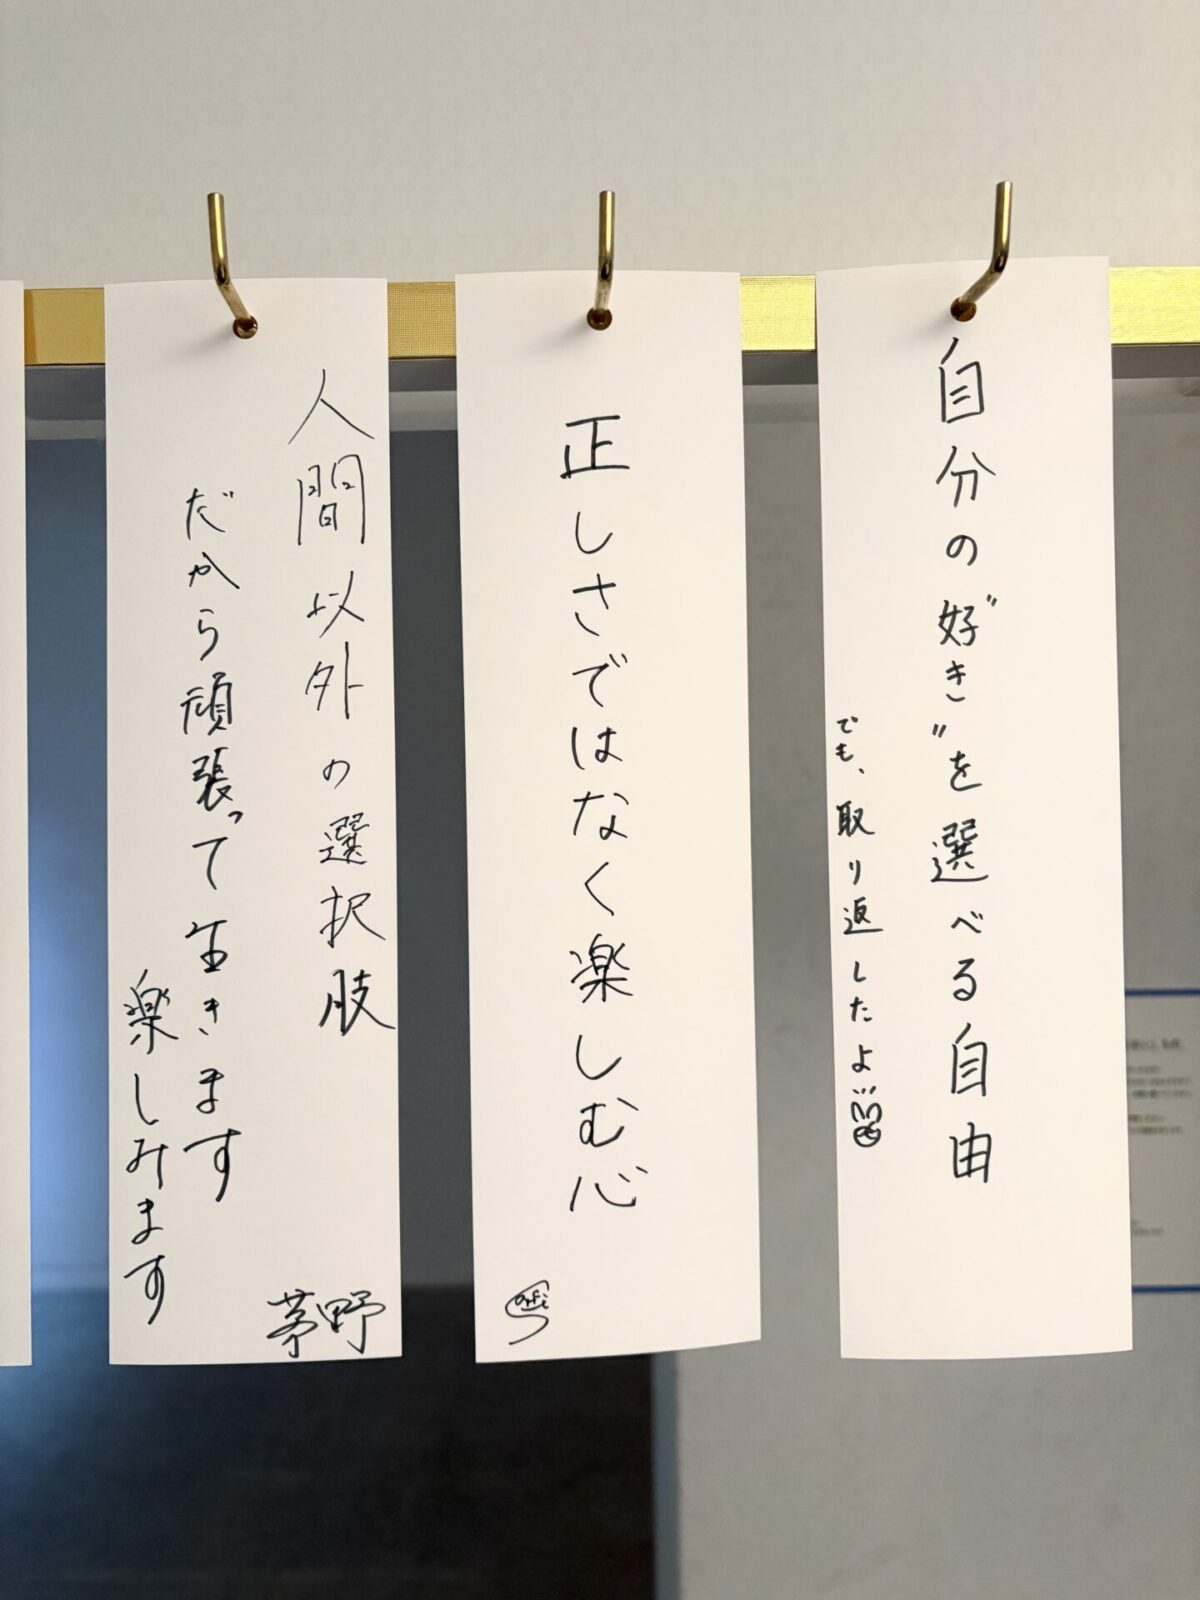 自分の"好き"を選べる自由
でも、取り返したよ
正しさではなく楽しむ心
人間以外の選択肢
だから頑張って生きます
楽しみます
茅野